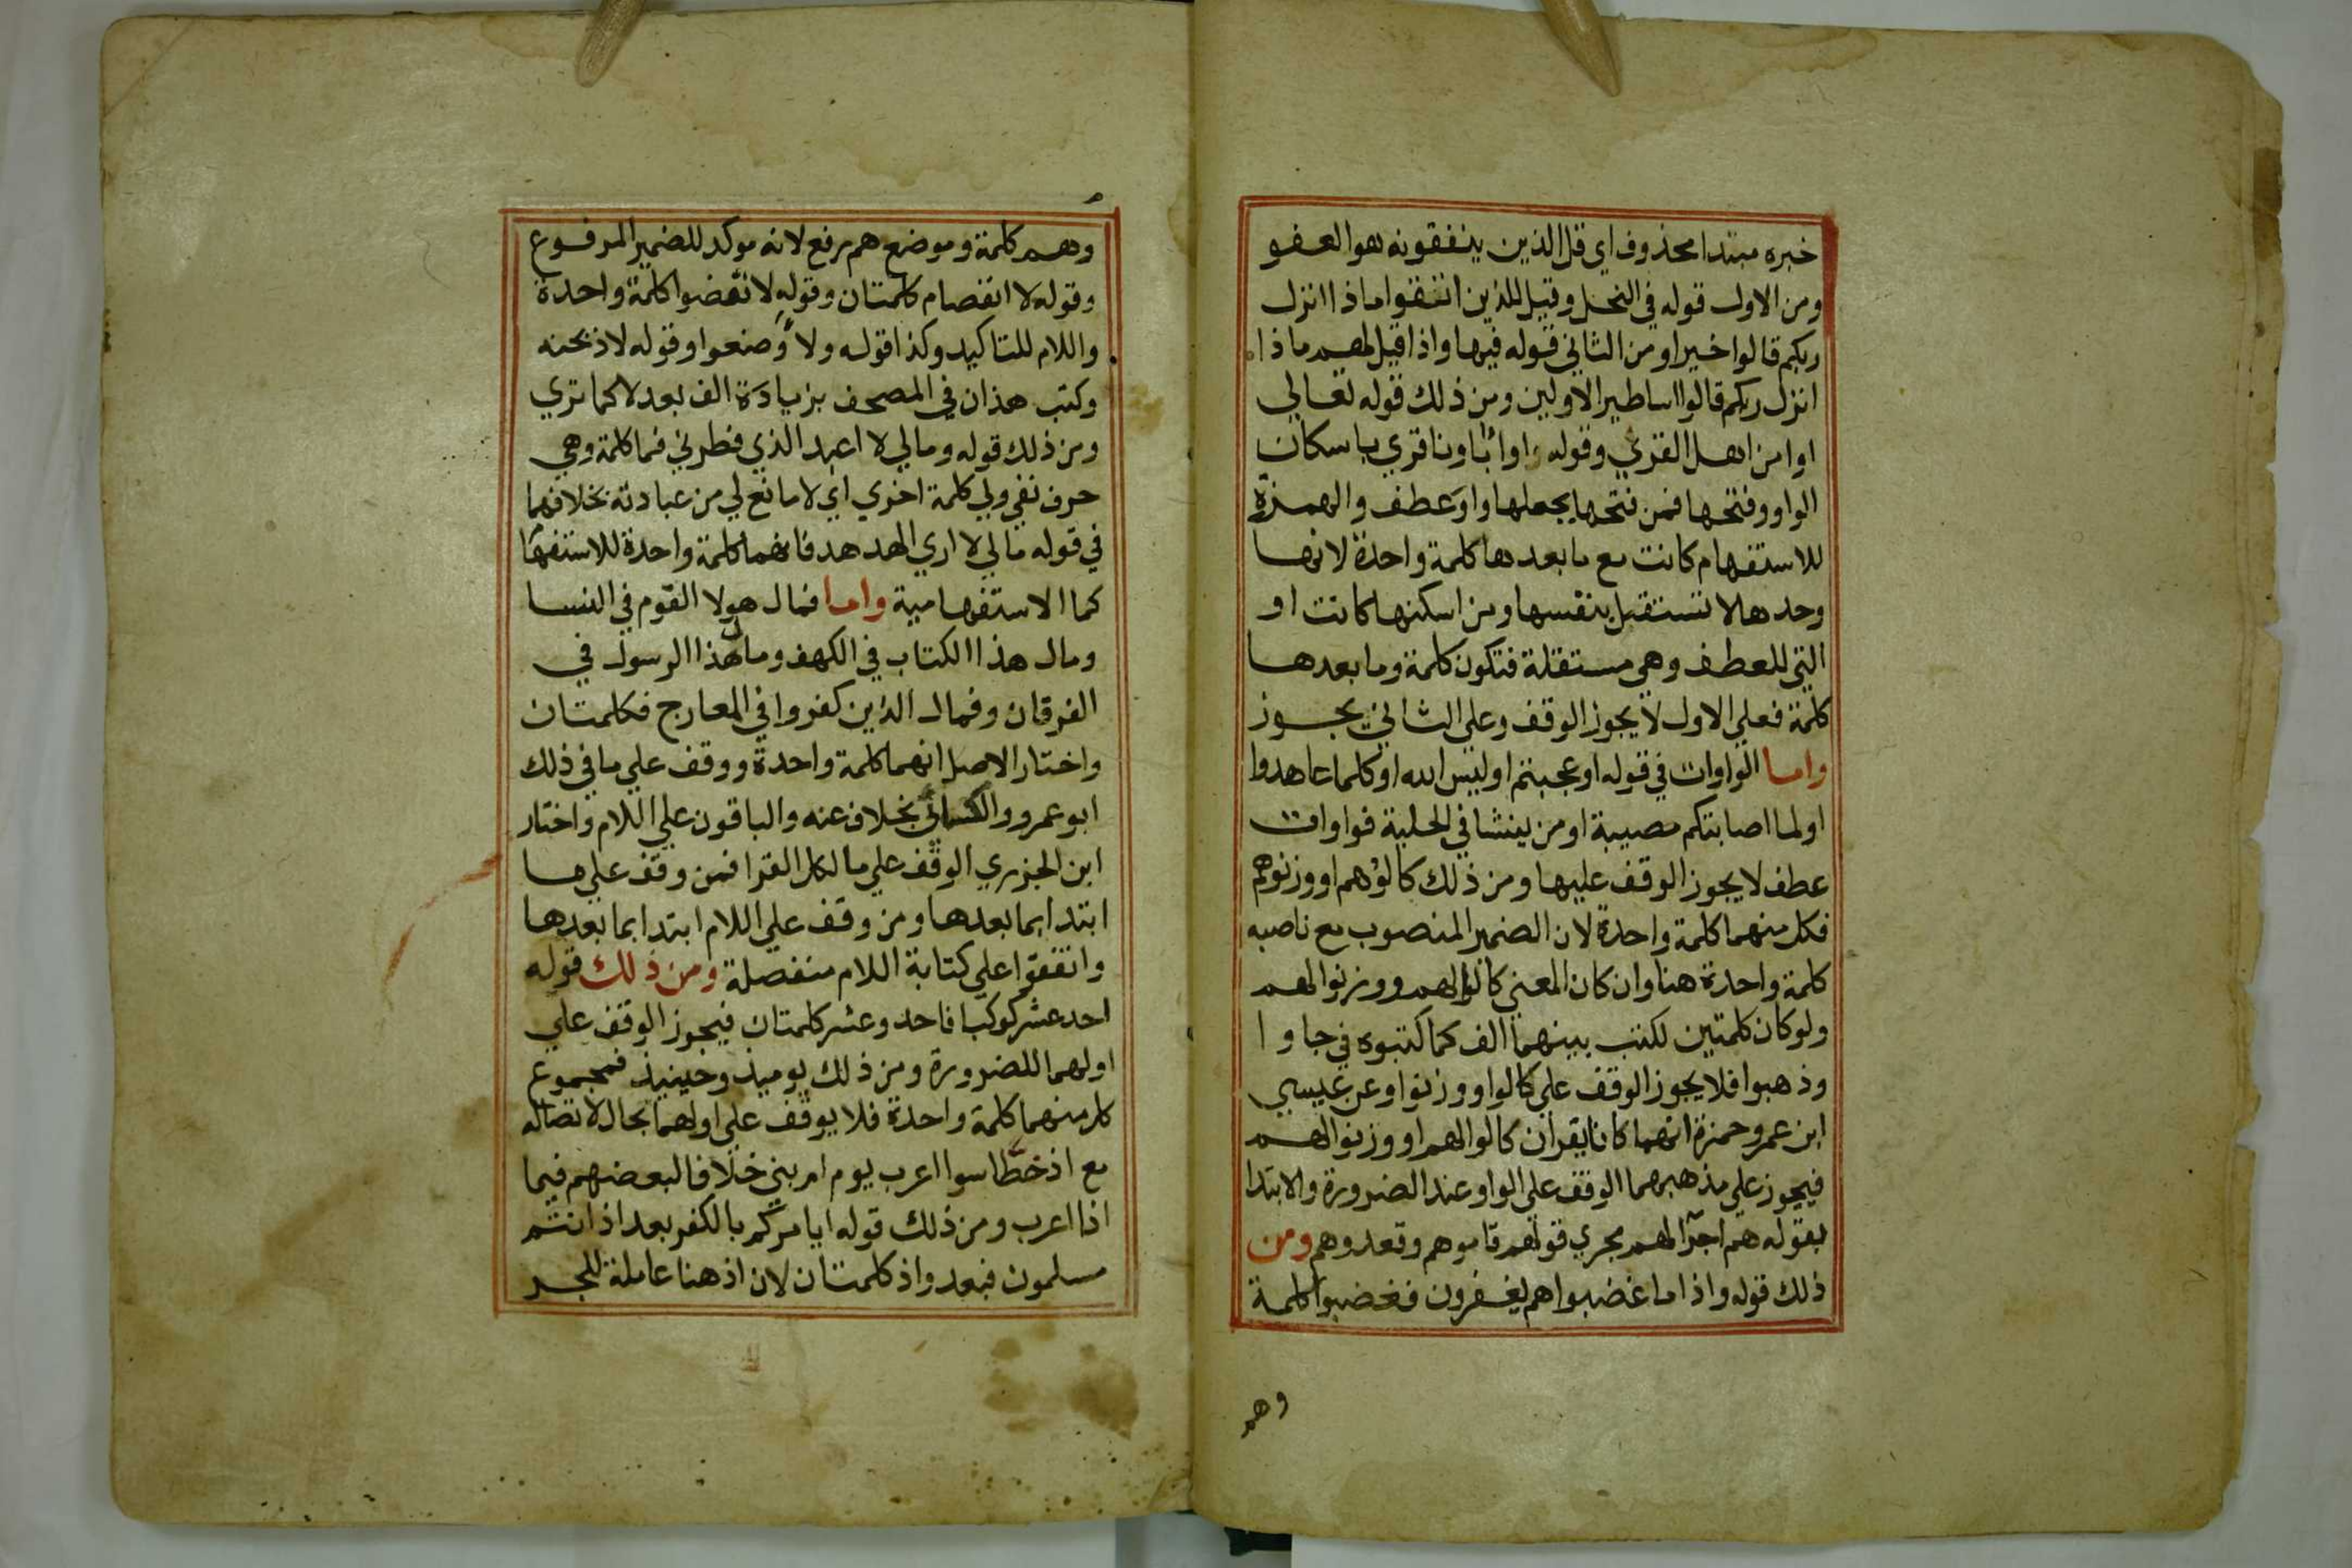 خبره مبتدا محذوف اي قل الذين ينفقونه هو العفو
ومن الاول قوله في النحل وقيل للذين اتقوا ماذا انزل
ربكم قالوا خيرا ومن الثاني قوله فيها واذا قيل لهم ماذا
انزل ربكم قالوا اساطير الاولين ومن ذلك قوله تعالي
اوامن اهل القري وقوله اواباونا قري باسكان
الواو وفتحها فمن فتحها يجعلها واو عطف والهمزة
للاستفهام كانت مع ما بعدها كلمة واحدة لانها
وحدها لا تستقل بنفسها ومن اسكنها كانت او
التي للعطف وهي مستقلة فتكون كلمة وما بعدها
كلمة فعلي الاول لا يجوز الوقف وعلي الثاني يجوز
واما الواوات في قوله اوعجبتم اوليس الله اوكلما عاهدوا
اولما اصابتكم مصيبة اومن ينشا في الحلية فواوات
عطف لا يجوز الوقف عليها ومن ذلك كالوهم او وزنوهم
فكل منهما كلمة واحدة لان الضمير المنصوب مع ناصبه
كلمة واحدة هنا وان كان المعني كالوا لهم ووزنوا لهم
ولو كان كلمتين لكتب بينهما الف كما كتبوه في جاوا
وذهبوا فلا يجوز الوقف علي كالوا ووزنوا وعن عيسي
ابن عمر وحمزة انهما كانا يقران كالوا لهم او وزنوا لهم
فيجوز علي مذهبهما الوقف علي الواو عند الضرورة والابتدا
بقوله هم اجرا لهم مجري قولهم قاموهم وقعدوهم ومن
ذلك قوله واذا ما غضبوا هم يغفرون فغضبوا كلمة
وهم
وهم كلمة وموضع هم رفع لانه موكد للضمير المرفوع
وقوله لا انفصام كلمتان وقوله لانفضوا كلمة واحدة
واللام للتاكيد وكذا قوله ولاوضعوا وقوله لاذبحنه
وكتب هذان في المصحف بزيادة الف بعد لا كما تري
ومن ذلك قوله ومالي لا اعبد الذي فطرني فما كلمة وهي
حرف نفي ولي كلمة اخري اي لا مانع لي من عبادته بخلافهما
في قوله مالي لا اري الهدهد فانهما كلمة واحدة للاستفها
كما الاستفهامية واما فمال هولا القوم في النسا
ومال هذا الكتاب في الكهف ومال هذا الرسول في
الفرقان وفمال الذين كفروا في المعارج فكلمتان
واختار الاصل انهما كلمة واحدة ووقف علي ما في ذلك
ابو عمرو والكسائي بخلاف عنه والباقون علي اللام واختار
ابن الجزري الوقف علي ما لكل القرا فمن وقف علي ما
ابتدا بما بعدها ومن وقف علي اللام ابتدا بما بعدها
واتفقوا علي كتابة اللام منفصلة ومن ذلك قوله
احد عشر كوكبا فاحد وعشر كلمتان فيجوز الوقف علي
اولهما للضرورة ومن ذلك يوميذ وحينيذ فمجموع
كل منهما كلمة واحدة فلا يوقف علي اولهما بحال لاتصاله
مع اذ خطا سوا اعرب يوم ام بني خلافا لبعضهم فيما
اذا اعرب ومن ذلك قوله ايامركم بالكفر بعد اذ انتم
مسلمون فبعد واذ كلمتان لان اذ هنا عاملة للجر